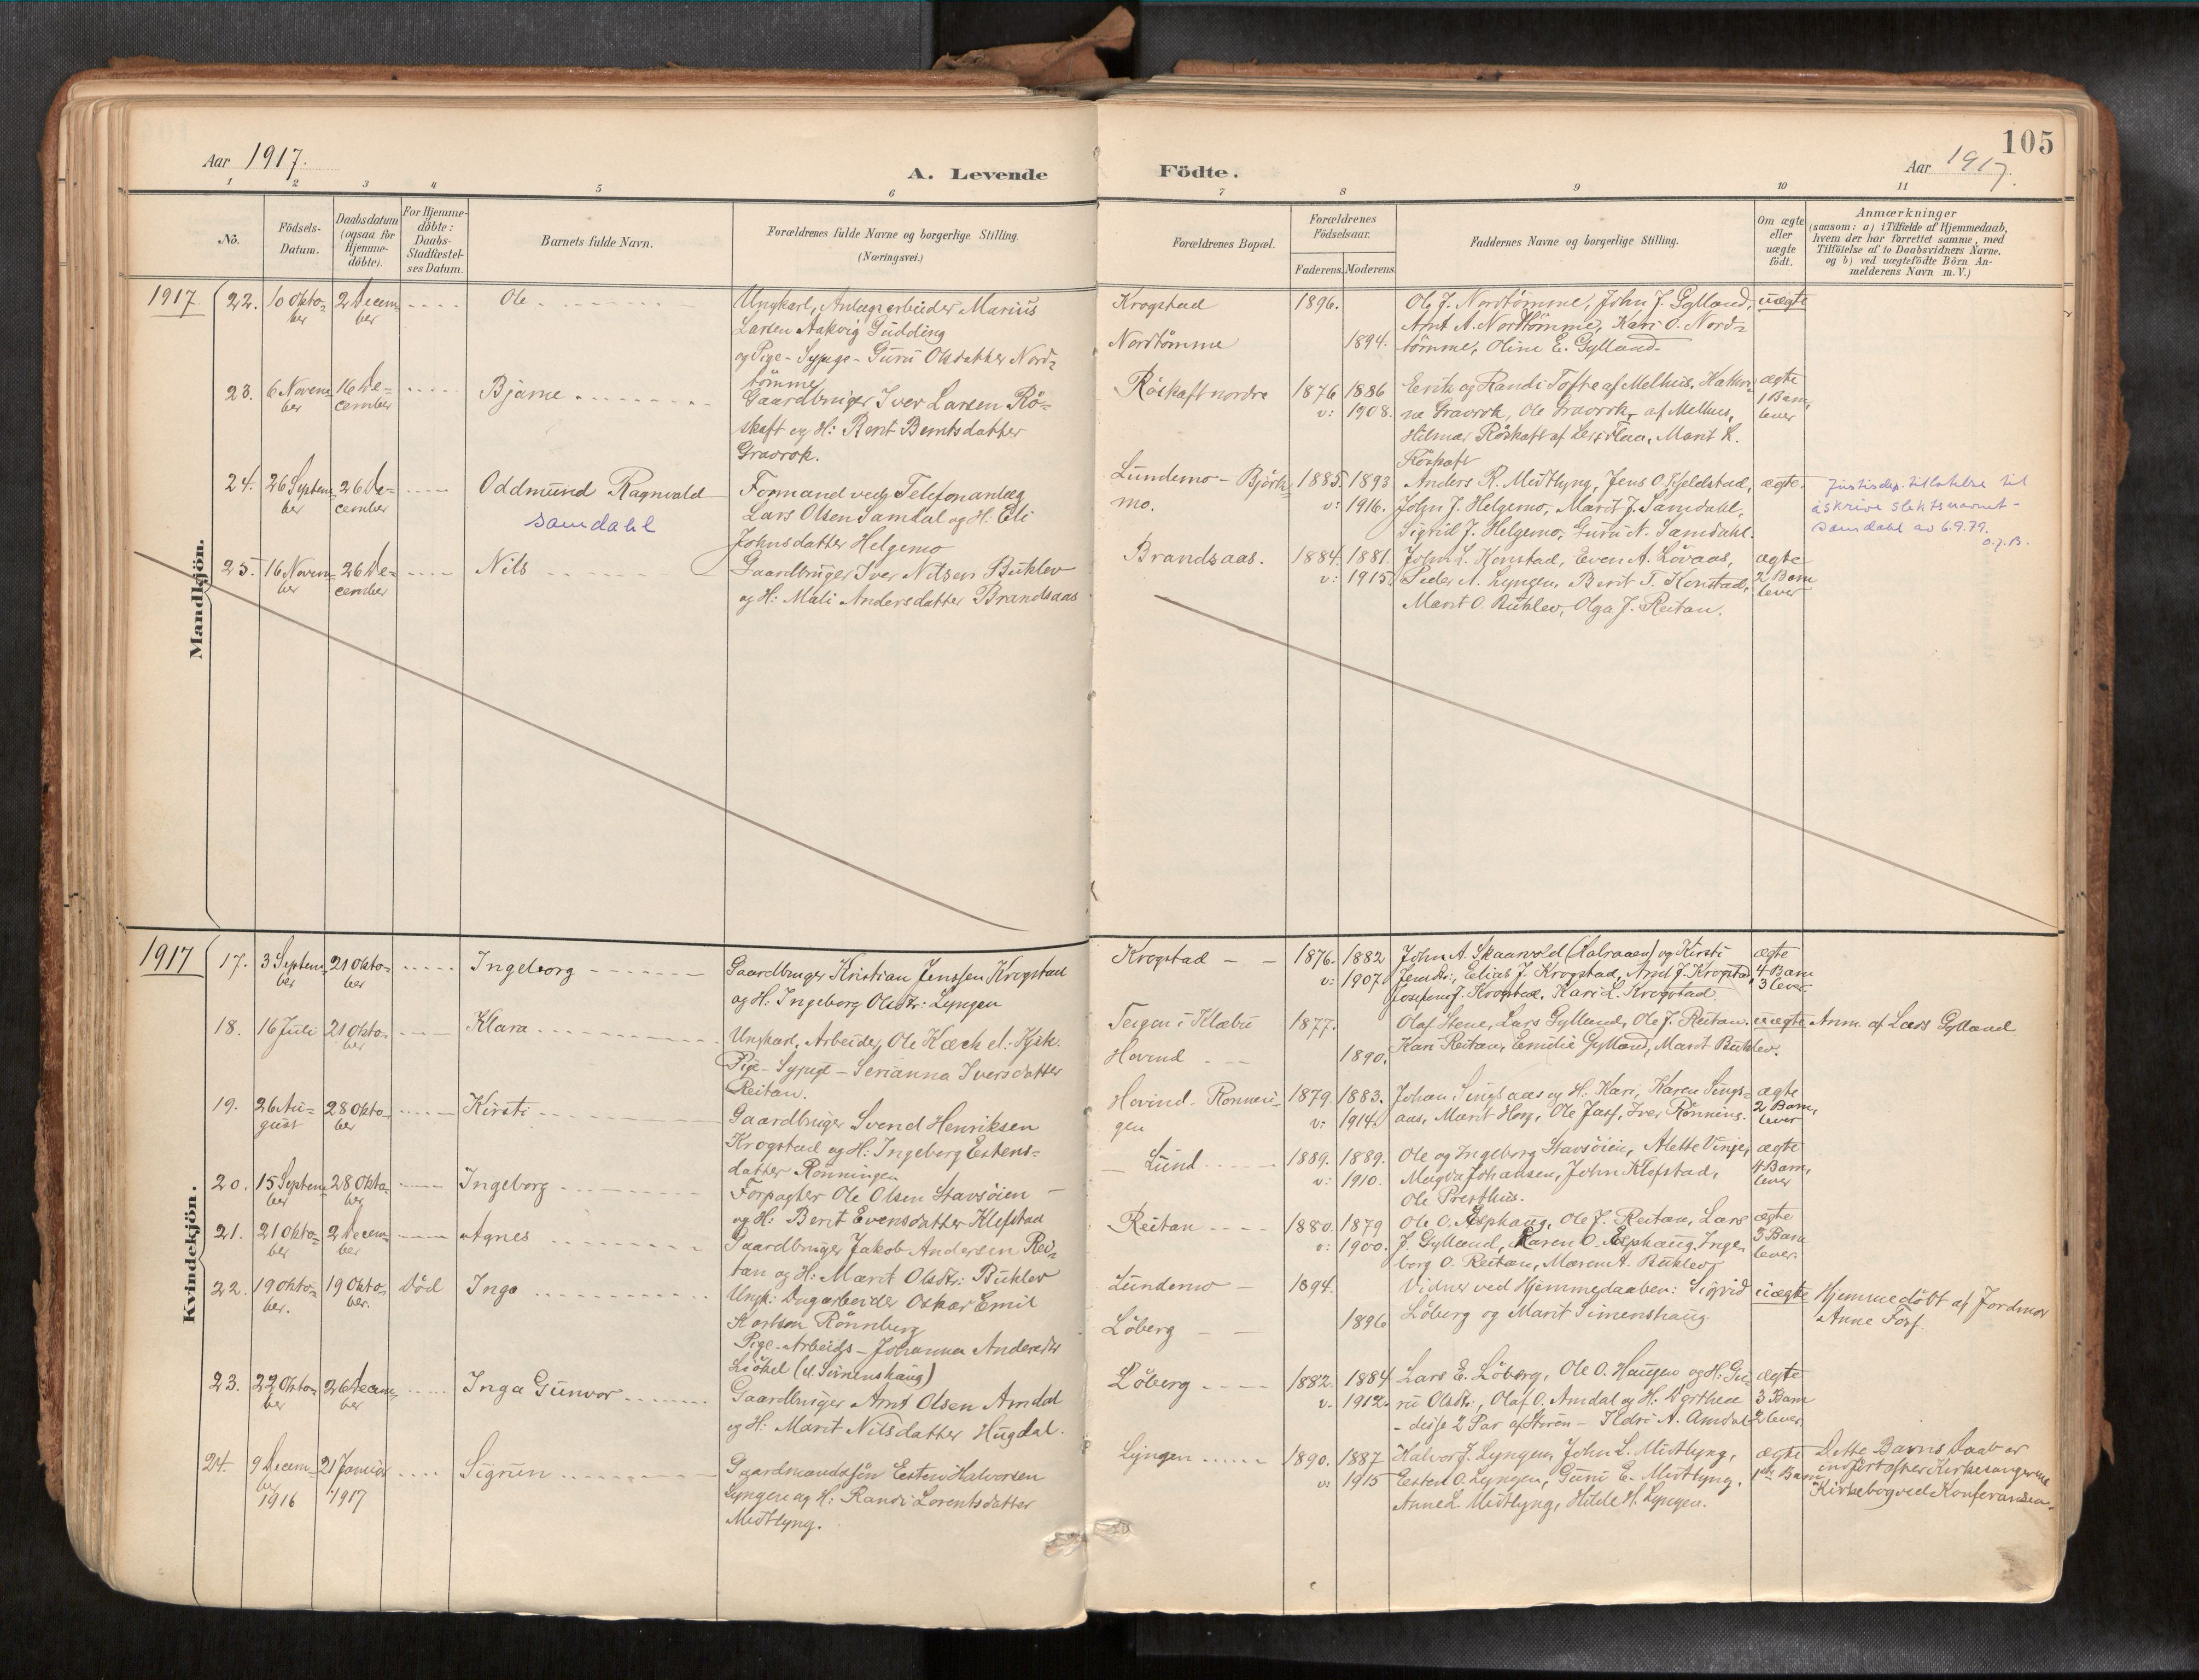 105
Aar 1917.
A. Levende
Födte.
Aar 1917.
1 2 3 4 5 6 7 8 9 10 11
No.
Födsels-
Datum.
Daabsdatum
(ogsaa for
Hjemme-
döbte).
For Hjemme-
döbte:
Daabs-
Stadfæstel-
ses Datum.
Barnets fulde Navn.
Forældrenes fulde Navne og borgerlige Stilling.
(Næringsvei.)
Forældrenes Bopæl.
Forældrenes
Födselsaar.
Faderens. Moderens.
Faddernes Navne og borgerlige Stilling.
Om ægte
eller
uægte
födt.
Anmærkninger
(saasom: a) i Tilfælde af Hjemmedaab,
hvem der har forrettet samme, med
Tilföielse af to Daabsvidners Navne.
og b) ved uægtefödte Börn An-
melderens Navn m.V.)
Mandkjön.
1917
22.
10 Okto-
ber
2 Decem-
ber
Ole
Ungkarl, Anlægsarbeider Marius
Larsen Aakvig Gudding
og Pige - Sypige - Guru Olsdatter Nord-
tömme
Krogstad
Nordtömme
1896.
1894.
Ole J. Nordtömme, John J. Gylland,
Arnt A. Nordtömme, Kari O. Nord-
tömme, Oline E. Gylland
uægte
23.
6 Novem-
ber
16 De-
cember
Bjarne
Gaardbruger Iver Larsen Rö-
skaft og H: Berit Berntsdatter
Gravrok.
Röskaft nordre
1876 1886
v: 1908.
Erik og Randi Tofte af Melhus, Katri-
ne Gravrok, Ole Gravrok, af Melhus,
Hilmar Röskaft af Ler i Flaa, Marit L.
Röskaft
ægte
1 Barn,
lever
24.
26 Septem-
ber
26 De-
cember
Oddmund Ragnvald
Samdahl
Formand ved Telefonanlæg
Lars Olsen Samdal og H: Eli
Johnsdatter Helgemo
Lundemo - Björk-
mo.
1885. 1893
v: 1916.
Anders R. Midtlyng, Jens O. Kjeldstad,
John J. Helgemo, Marit J. Samdahl,
Sigrid J. Helgemo, Guru N. Samdahl.
ægte.
Justisdep. tillatelse til
å skrive slektsnavnet -
Samdahl av 6.9.79.
O.J.B.
25.
16 Novem-
ber
26 De-
cember
Nils
Gaardbruger Iver Nilsen Buhlev
og H: Mali Andersdatter Brandsaas
Brandsaas.
1884. 1881.
v: 1915.
John L. Konstad, Even A. Lövaas,
Peder A. Lyngen, Berit T. Konstad,
Marit O. Buhlev, Olga J. Reitan.
ægte
2 Barn
lever
Kvindekjön.
1917
17.
3 Septem-
ber
21 Okto-
ber
Ingeborg
Gaardbruger Kristian Jenssen Krogstad
og H: Ingeborg Olsdtr: Lyngen
Krogstad
1876. 1882
v: 1907
John A. Skaarvold og Kirsti
Jensdtr:, Elias J. Krogstad, Arnt J. Krogstad,
Josefine J. Krogstad, Kari L. Krogstad
ægte
4 Barn
3 lever.
18.
16 Juli
21 Okto-
ber
Klara
Ungkarl, Arbeider, Ole
Pige - Sypige - Serianna Iversdatter
Reitan.
Teigen i Klæbu
Hovind
1877.
1890.
Olaf Stene, Lars Gylland, Ole J. Reitan.
Kari Reitan, Emilie Gylland, Marit Buhlev.
uægte
Anm. af Lars Gylland
19.
26 Au-
gust
28 Okto-
ber
Kirsti
Gaardbruger Svend Henriksen
Krogstad og H: Ingeborg Estens-
datter Rönningen
Hovind - Ronnin-
gen
1879. 1883.
v: 1914.
Johan Singsaas og H. Kari, Karen Sings-
aas, Marit Horg, Ole Fosf, Iver Rönning.
ægte
2 Barn,
lever
20.
15 Septem-
ber
28 Okto-
ber
Ingeborg
Forpagter Ole Olsen Stavsöien
og H: Berit Evensdatter Klefstad
Lund
1889. 1889.
v: 1910.
Ole og Ingeborg Stavsöien, Alette Vinje,
Magda Johansen, John Klefstad,
Ole Presthus.
ægte
4 Barn,
lever
21.
21 Okto-
ber
2 Decem-
ber
Agnes
Gaardbruger Jakob Andersen Rei-
tan og H: Marit Olsdtr: Buhlev
Reitan
1880. 1879
v: 1900.
Ole O. Esphaug, Ole J. Reitan, Lars
J. Gylland, Karen O. Esphaug, Inge-
borg O. Reitan, Maren A. Buhlev
ægte
5 Barn
lever.
22.
19 Okto-
ber.
19 Okto-
ber.
Död
Inga
Ungk: Dagarbeider Oskar Emil
Karlson Rönnberg
Pige - Arbeids - Johanna Andersdtr
Liöbel (el. Simenshaug)
Lundemo
Löberg
1894.
1896
Vidner ved Hjemmedaaben: Sigrid
Löberg og Marit Simenshaug.
uægte
Hjemmedöbt af Jordmor
Anne Fosf.
23.
22 Okto-
ber
26 Decem-
ber
Inga Gunvor
Gaardbruger Arnt Olsen Amdal
og H: Marit Nilsdatter Hugdal.
Löberg
1882. 1884
v. 1912.
Lars E. Löberg, Ole O. Haugen og H: Gu-
ru Olsdtr:, Olaf O. Amdal og H: Dorthea
- disse 2 Par af Stören - Ildri A. Amdal
ægte
3 Barn
2 lever
24.
9 Decem-
ber
1916
21 Januar
1917
Sigrun
Gaardmandssön Esten Halvorsen
Lyngen og H: Randi Lorentsdatter
Midtlyng.
Lyngen
1890. 1887
v: 1915
Halvor J. Lyngen, John L. Midtlyng,
Esten O. Lyngen, Guru E. Midtlyng,
Anne L. Midtlyng, Hilde H. Lyngen.
ægte
1ste Barn
Dette Barns Daab er
indfört efter Kirkesangerens
Kirkebog ved Konferansen.